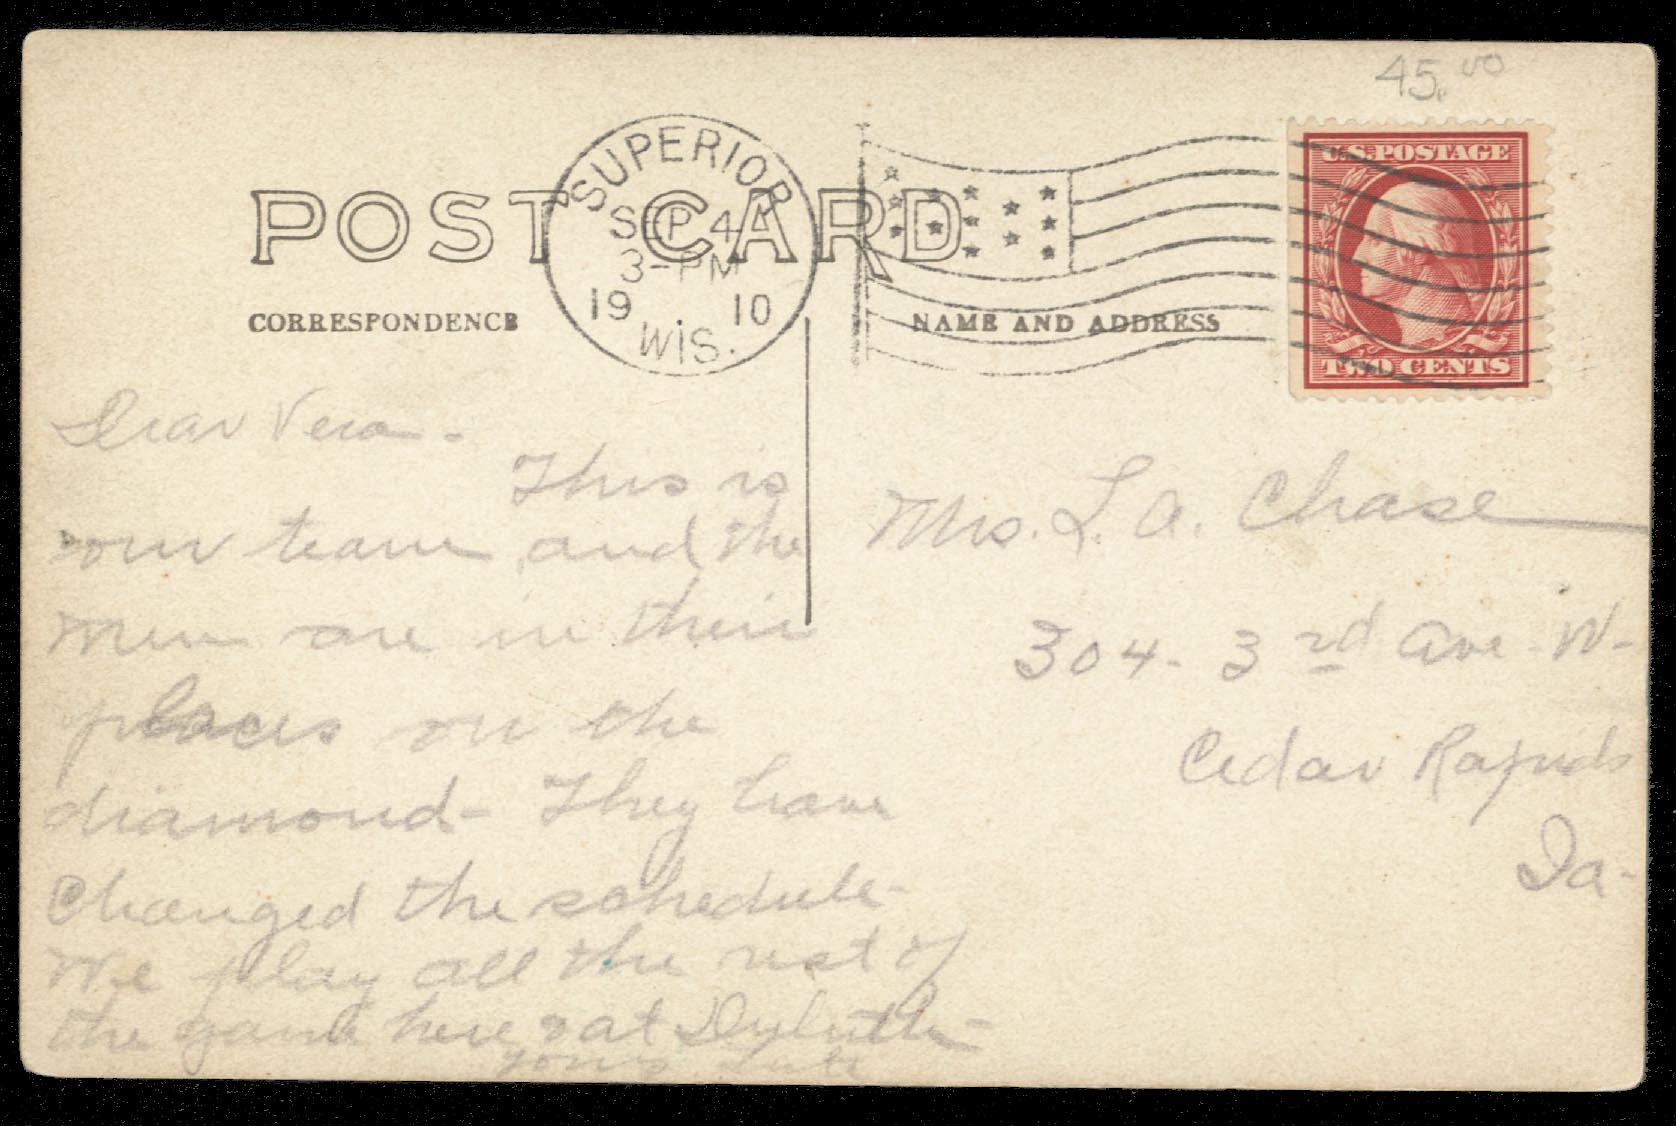 45.00
U.S. POSTAGE
SUPERIOR
SEP 4
3-PM
19 10
WIS.
POST CARD
TWO CENTS
CORRESPONDENCE
NAME AND ADDRESS
Dear Vera -
This is
our team and the
men are in their
places on the
diamond - They have
changed the schedule -
We play all the rest of
the game here & at Duluth -
yours
Mrs. L. A. Chase
304 - 3rd Ave. W -
Cedar Rapids
Ia -